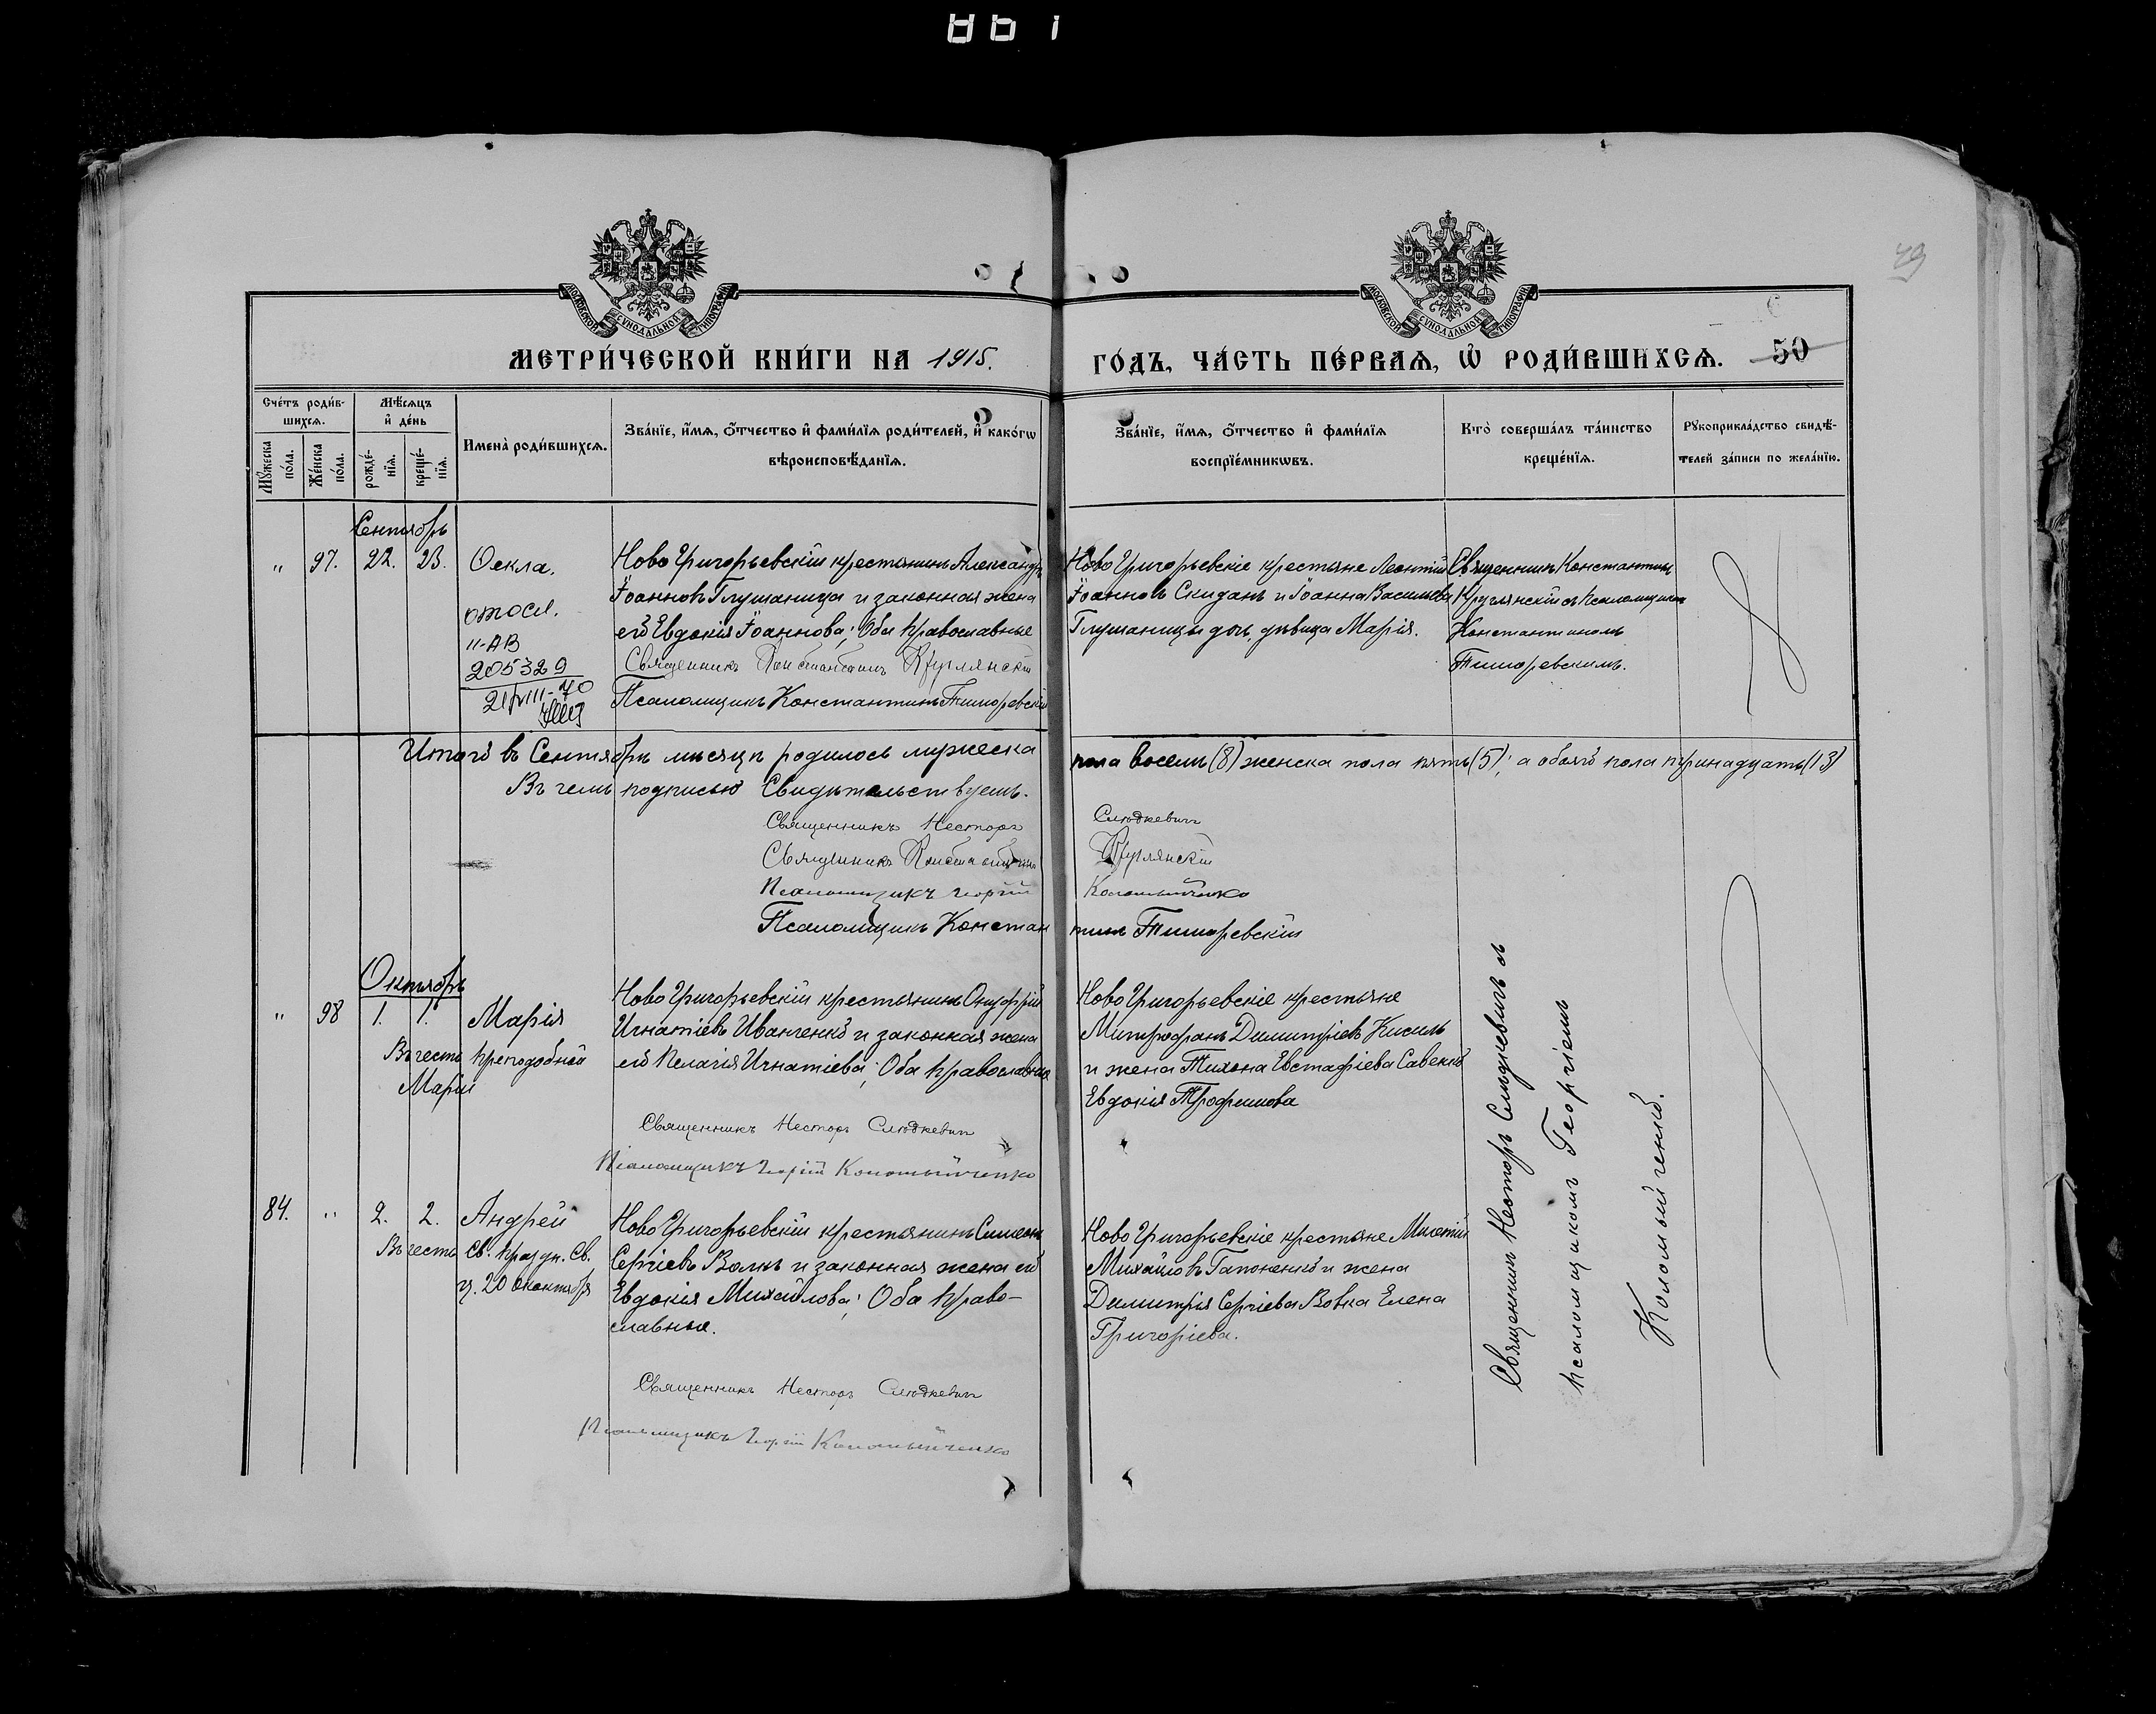 861
49
МОСКОВСКОЙ СѴНОДАЛЬНОЙ ТИПОГРАФІИ
МОСКОВСКОЙ СѴНОДАЛЬНОЙ ТИПОГРАФІИ
МЕТРИ́ЧЕСКОЙ КНИ́ГИ НА 1915.
ГО́ДЪ, ЧА́СТЬ ПЕ́РВАѦ, Ѡ҆ РОДИ́ВШИХСѦ. 50
Сче́тъ роди́в-
шихсѧ.
Мꙋ́жеска
по́ла.
Же́нска
по́ла.
Мѣ́сѧцъ
и҆ де́нь
рожде́-
нїѧ.
креще́-
нїѧ.
Имена̀ роди́вшихсѧ.
Зва́нїе, и҆́мѧ, ѻ҆́тчество и҆ фами́лїѧ роди́телей, и҆ како́гѡ
вѣроисповѣ́данїѧ.
Зва́нїе, и҆́мѧ, ѻ҆́тчество и҆ фами́лїѧ
воспрїе́мникѡвъ.
Кто̀ соверша́лъ та́инство
креще́нїѧ.
Рꙋкоприкла́дство свидѣ́-
телей за́писи по жела́нїю.
Сентябрь
" 97. 22. 23. Ѳекла.
Ново Григорьевскій крестьянинъ Александръ
Іоанновъ Глушаница и законная жена
его Евдокія Іоаннова; Оба православные
Священникъ Константинъ Круглянскій
Псаломщикъ Константинъ Тиморевскій
II-АВ
205329
21/VIII-70
Ново Григорьевскіе крестьяне Леонтій
Іоанновъ Скиданъ и Іоанна Васильева
Глушаницы дочь, дѣвица Марія.
Священникъ Константинъ
Круглянскій съ псаломщикомъ
Константиномъ
Тиморевскимъ.
Итого въ Сентябрѣ мѣсяцѣ родилось мужеска
пола восемь (8) женска пола пять (5); а обоего пола тринадцать (13)
Въ чемъ подписью Свидѣтельствуемъ.
Священникъ Несторъ Слюдкевичъ
Священникъ Константинъ Круглянскій
Псаломщикъ Георгій Коломыйченко
Псаломщикъ Константинъ Тиморевскій
Октябрь
" 98 1. 1. Марія
Въ честь преподобной
Маріи
Ново Григорьевскій крестьянинъ Онуфрій
Игнатіевъ Иванченко и законная жена
его Пелагія Игнатіева; Оба православные
Священникъ Несторъ Слюдкевичъ
Псаломщикъ Георгій Коломыйченко
Ново Григорьевскіе крестьяне
Митрофанъ Димитріевъ Кисиль
и жена Тихона Евстафіева Савенко
Евдокія Трофимова
Священникъ Несторъ Слюдкевичъ съ
псаломщикомъ Георгіемъ
Коломыйченко.
84. " 2. 2. Андрей
Въ честь св. праздн. Св.
ц. 20 октября
Ново Григорьевскій крестьянинъ Симеонъ
Сергіевъ Волкъ и законная жена его
Евдокія Михайлова; Оба право-
славные.
Священникъ Несторъ Слюдкевичъ
Псаломщикъ Георгій Коломыйченко
Ново Григорьевскіе крестьяне Милетій
Михайловъ Гапоненко и жена
Димитрія Сергіева Вовка Елена
Григоріева.